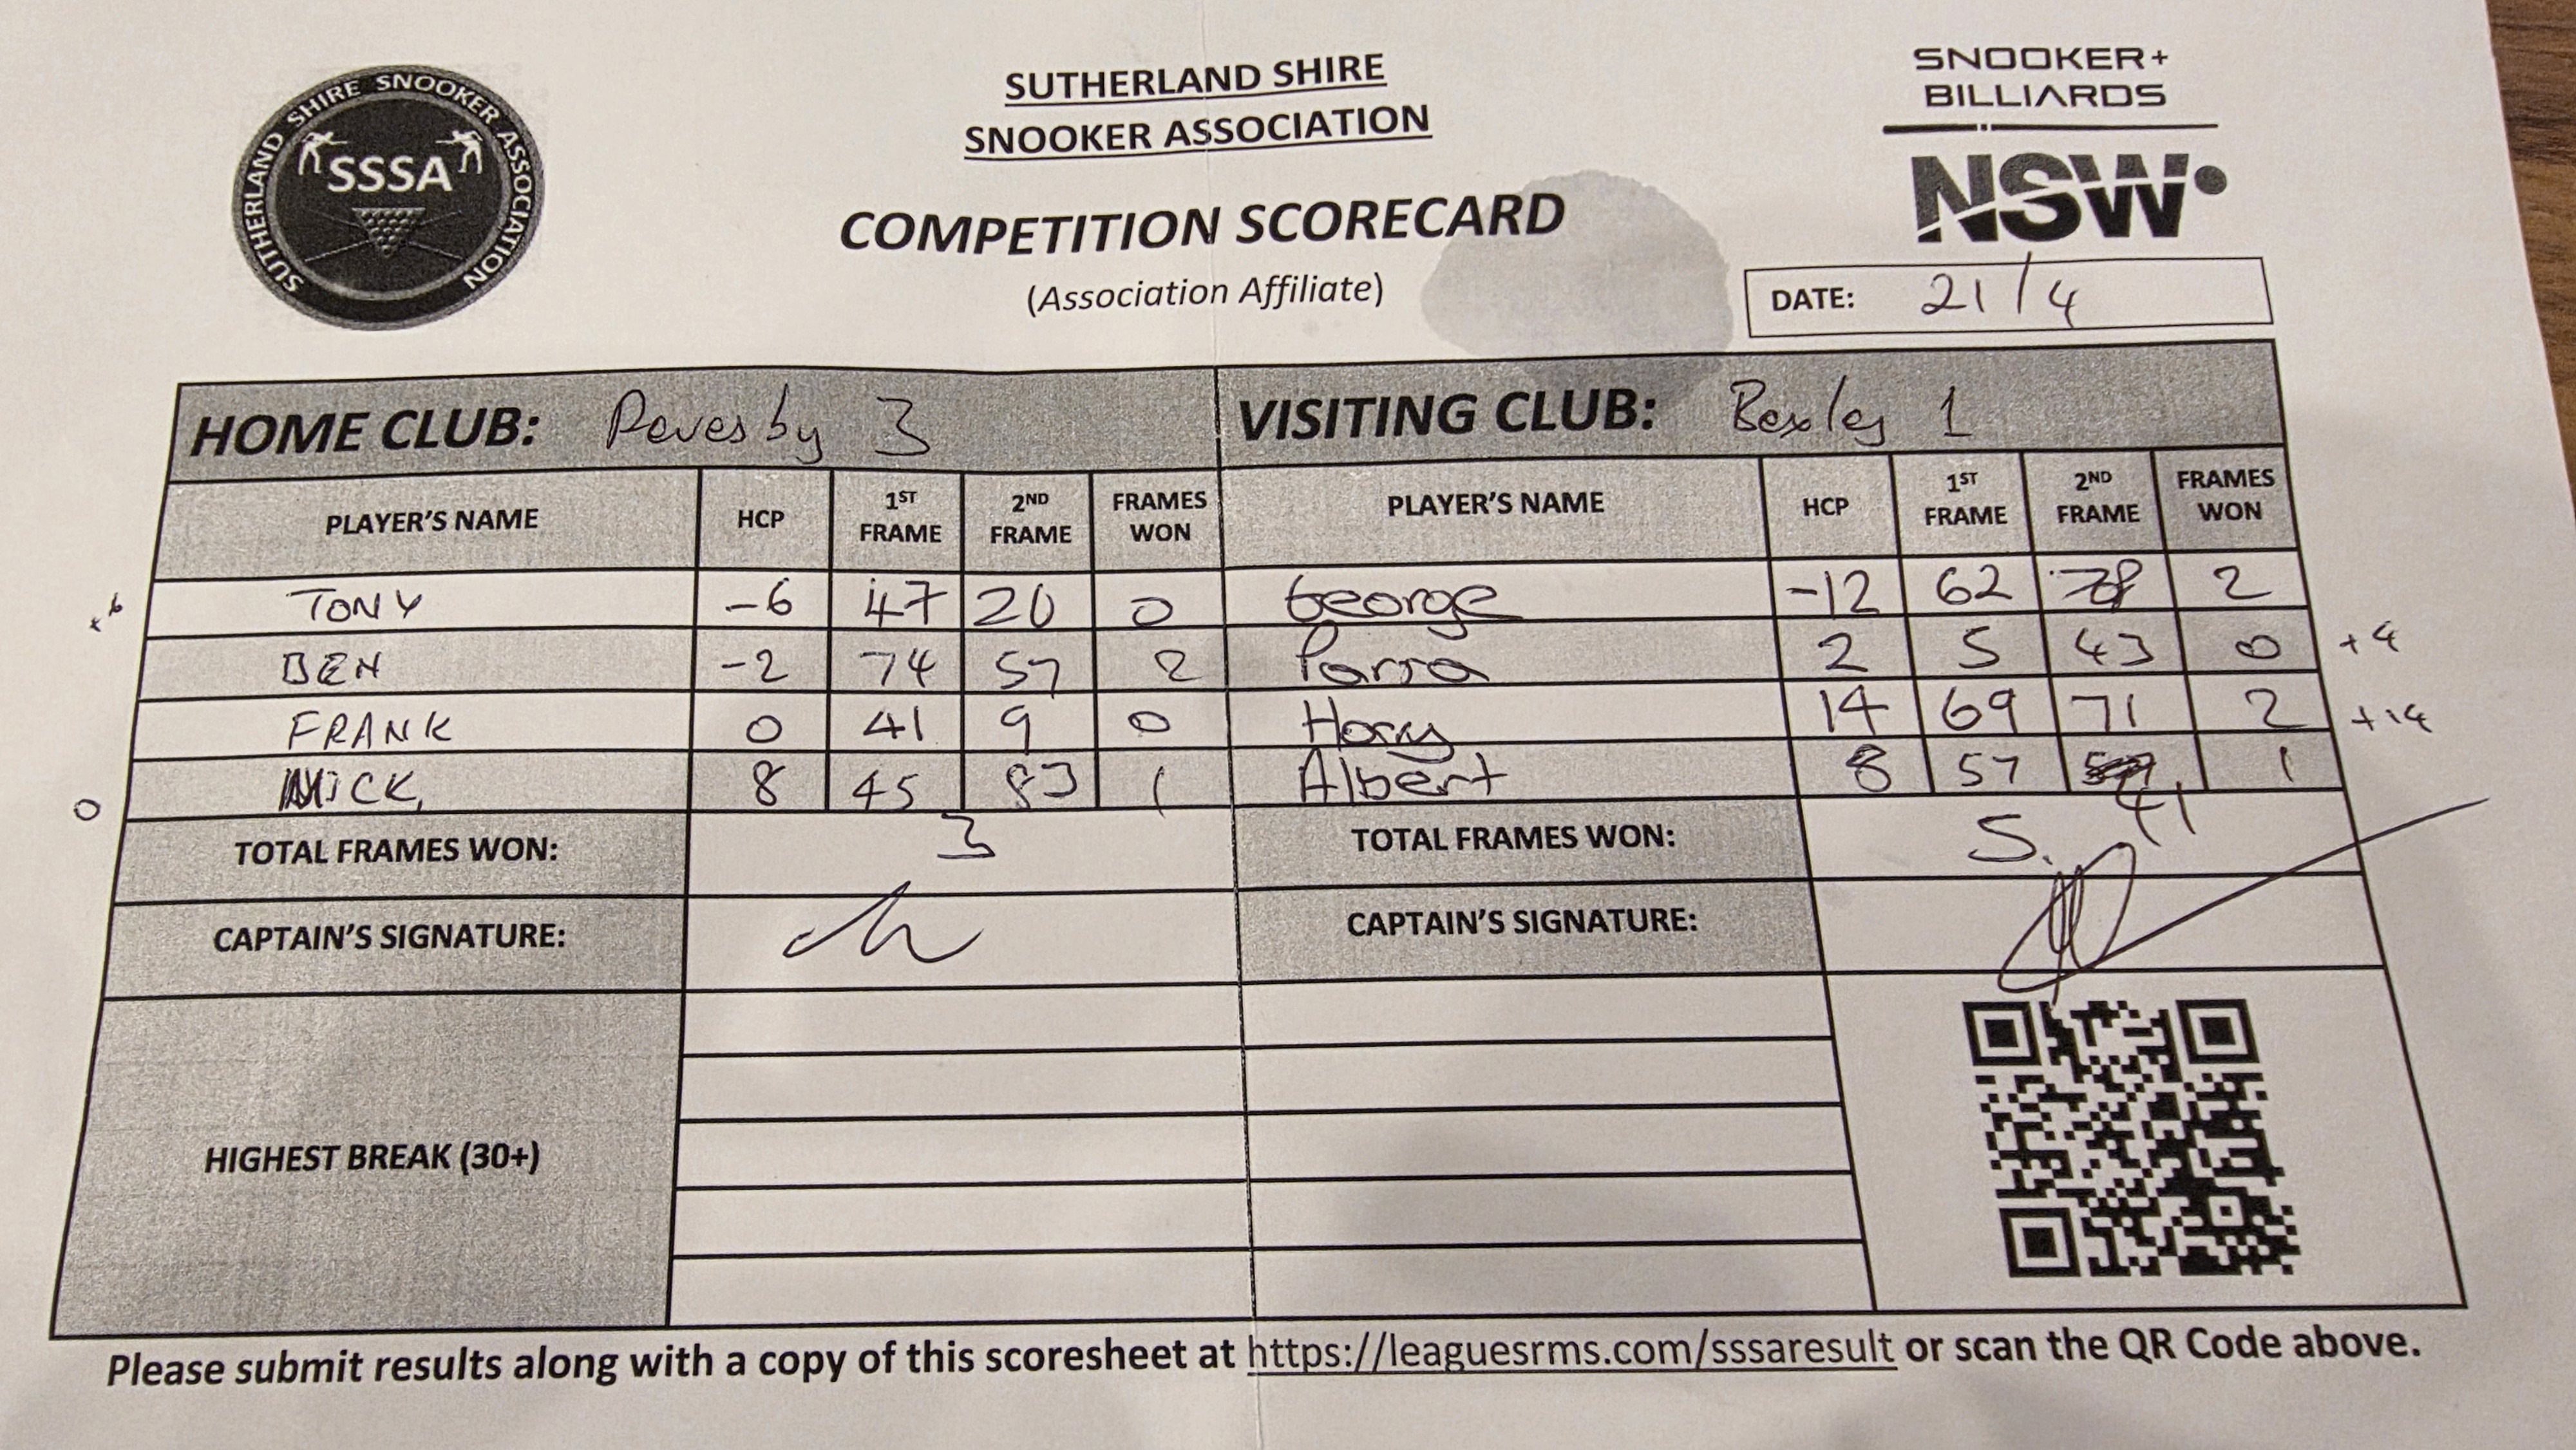 SUTHERLAND SHIRE SNOOKER ASSOCIATION
SSSA
SUTHERLAND SHIRE
SNOOKER ASSOCIATION
COMPETITION SCORECARD
(Association Affiliate)
SNOOKER+
BILLIARDS
NSW
DATE: 21/4
HOME CLUB: Revesby 3 VISITING CLUB: Bexley 1
PLAYER'S NAME HCP 1ST FRAME 2ND FRAME FRAMES WON PLAYER'S NAME HCP 1ST FRAME 2ND FRAME FRAMES WON
+6 TONY -6 47 20 0 George -12 62 78 2
BEN -2 74 57 2 Parsa 2 5 43 0 +4
FRANK 0 41 9 0 Harry 14 69 71 2 +14
0 MICK 8 45 83 1 Albert 8 57 41 1
TOTAL FRAMES WON: 3 TOTAL FRAMES WON: 5
CAPTAIN'S SIGNATURE: CAPTAIN'S SIGNATURE:
HIGHEST BREAK (30+)
Please submit results along with a copy of this scoresheet at https://leaguesrms.com/sssaresult or scan the QR Code above.